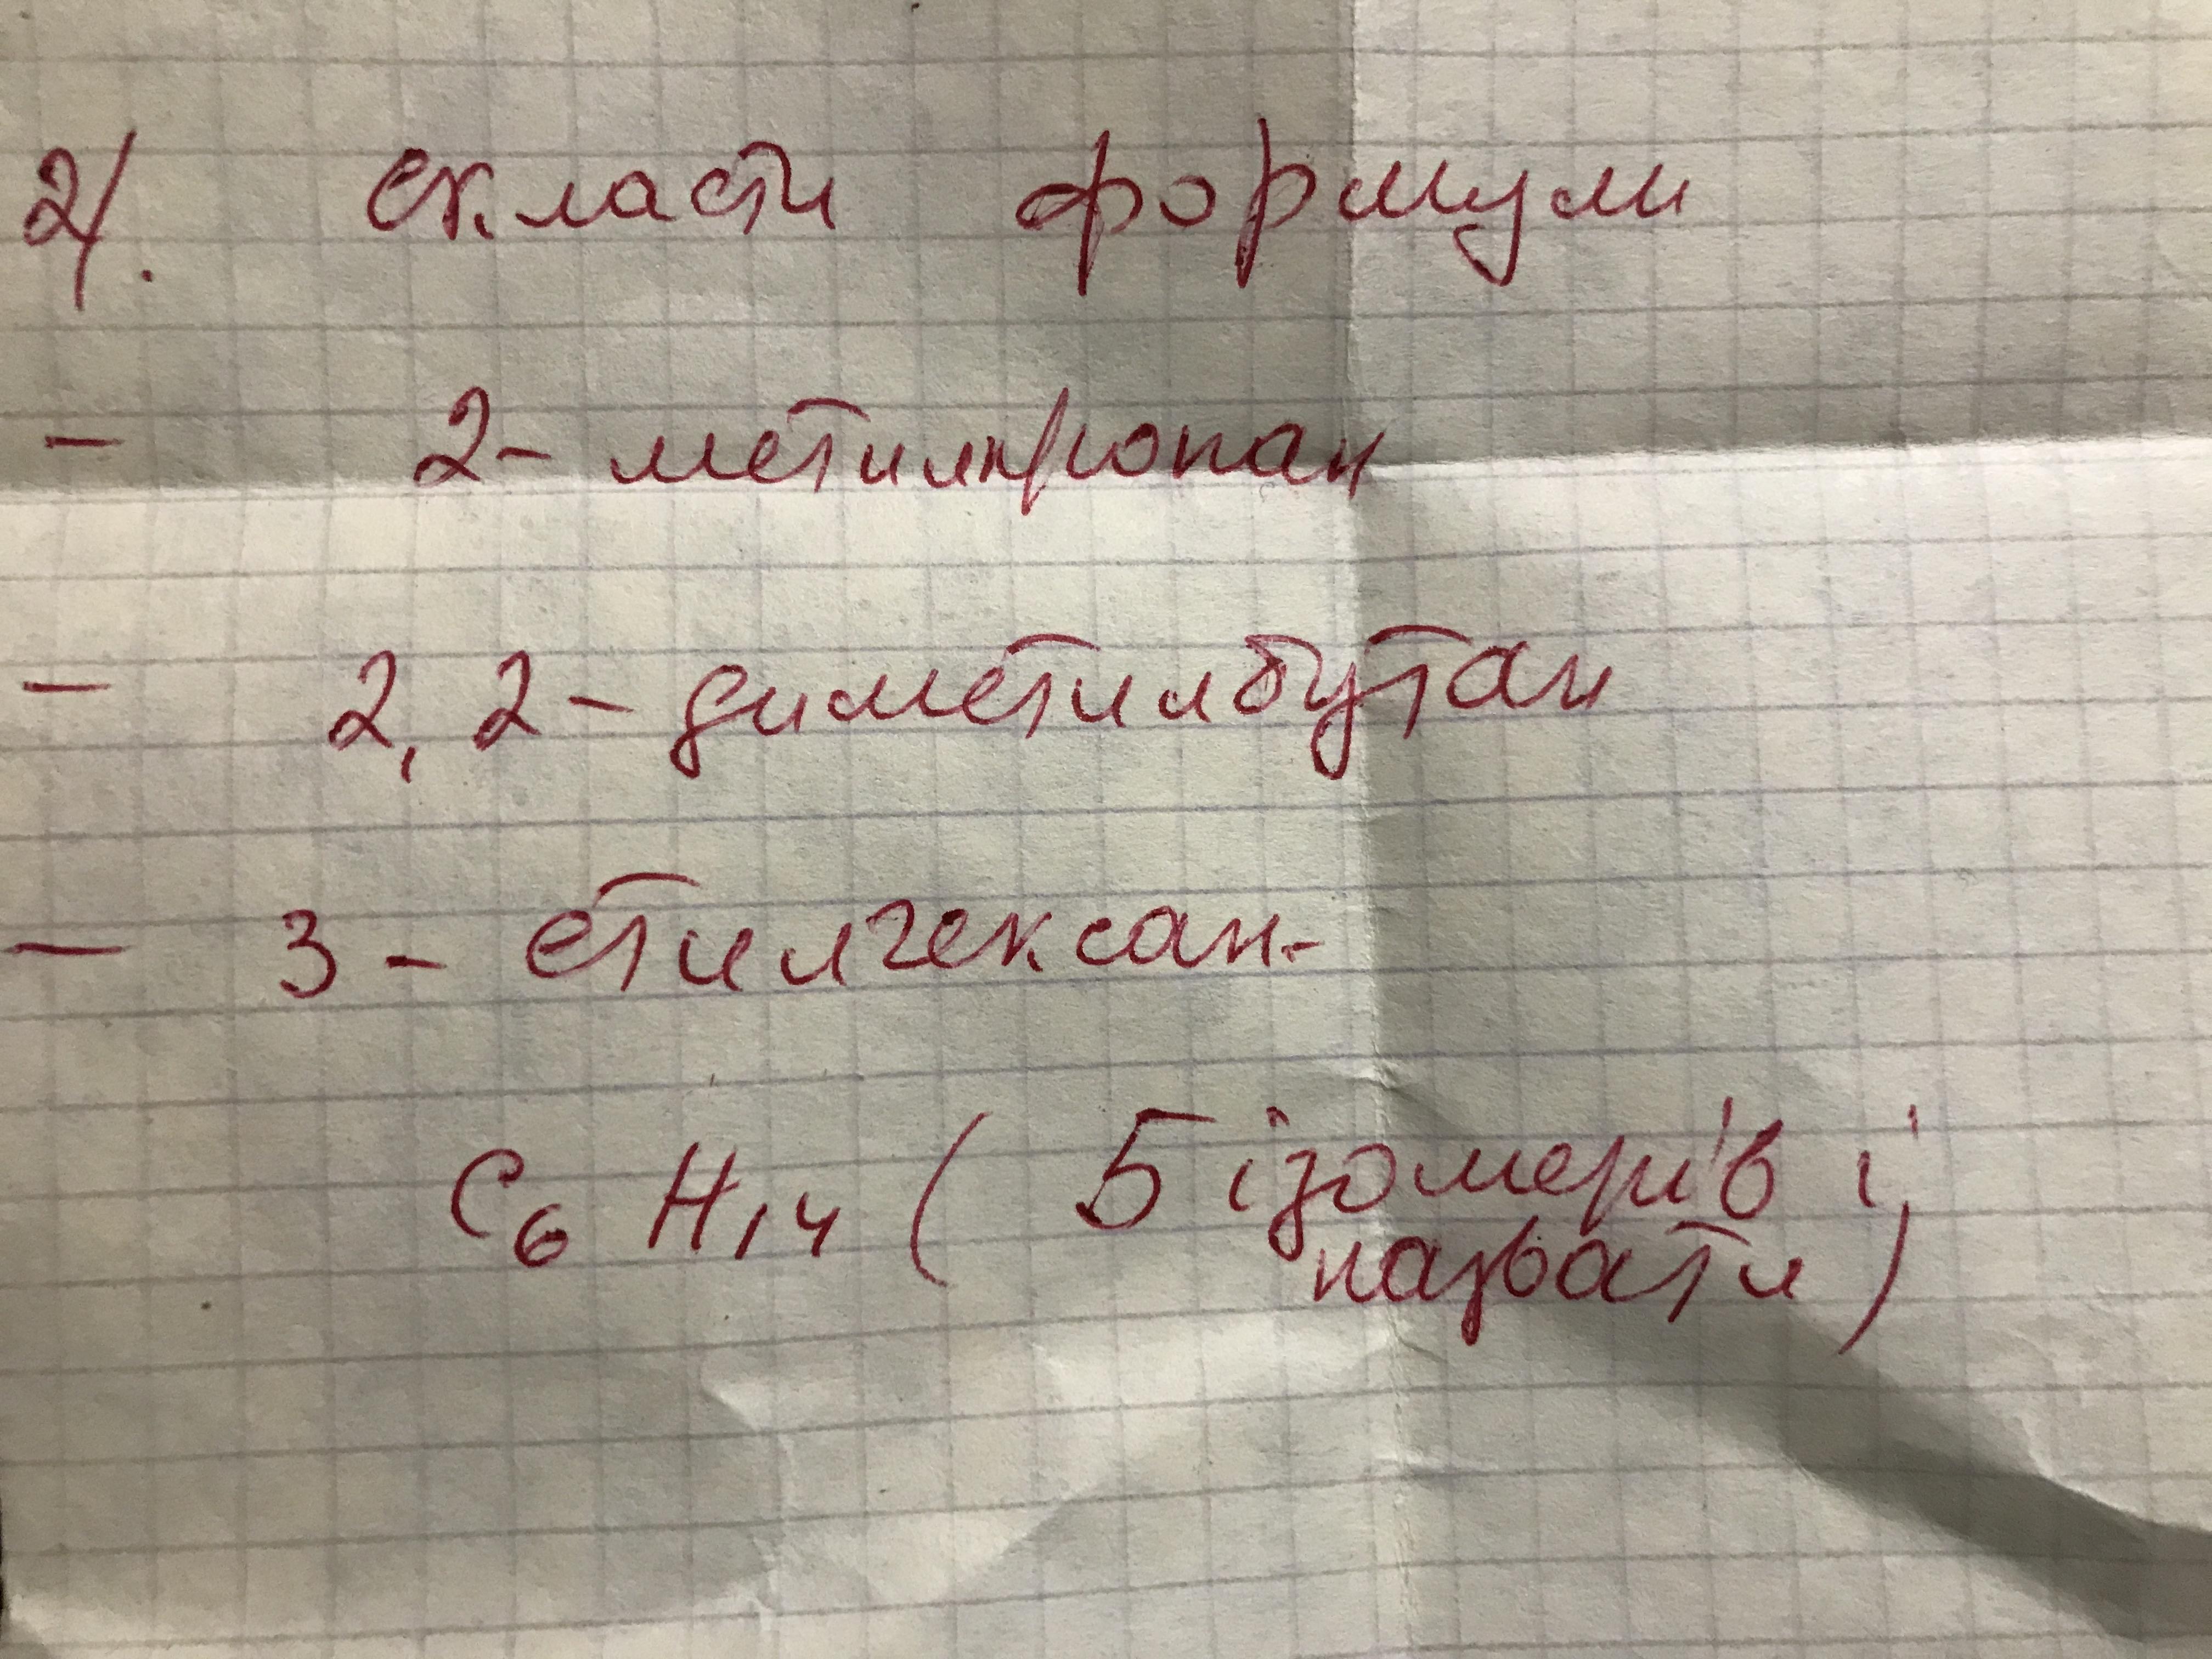 2/. скласти формули
- 2-метилпропан
- 2,2-диметилбутан
- 3-етилгексан-
C₆H₁₄ (5 ізомерів і
назвати)